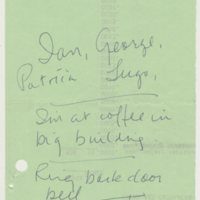 Ian, George,
Patricia Lugo,
I'm at coffee in
big building.
Ring back door
bell